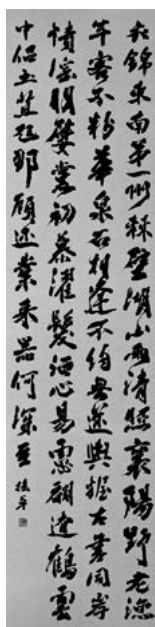 衣錦東南第一州棘璧湖山兩清照襄陽野老漁
竿客不紛華泉石相逢不約無逆輿握古書同岸
幘淫朋嬖黨初慕濯髮洒心易慮翩遼鶴雲
中侶土苴尪那顧迩業來器何深至